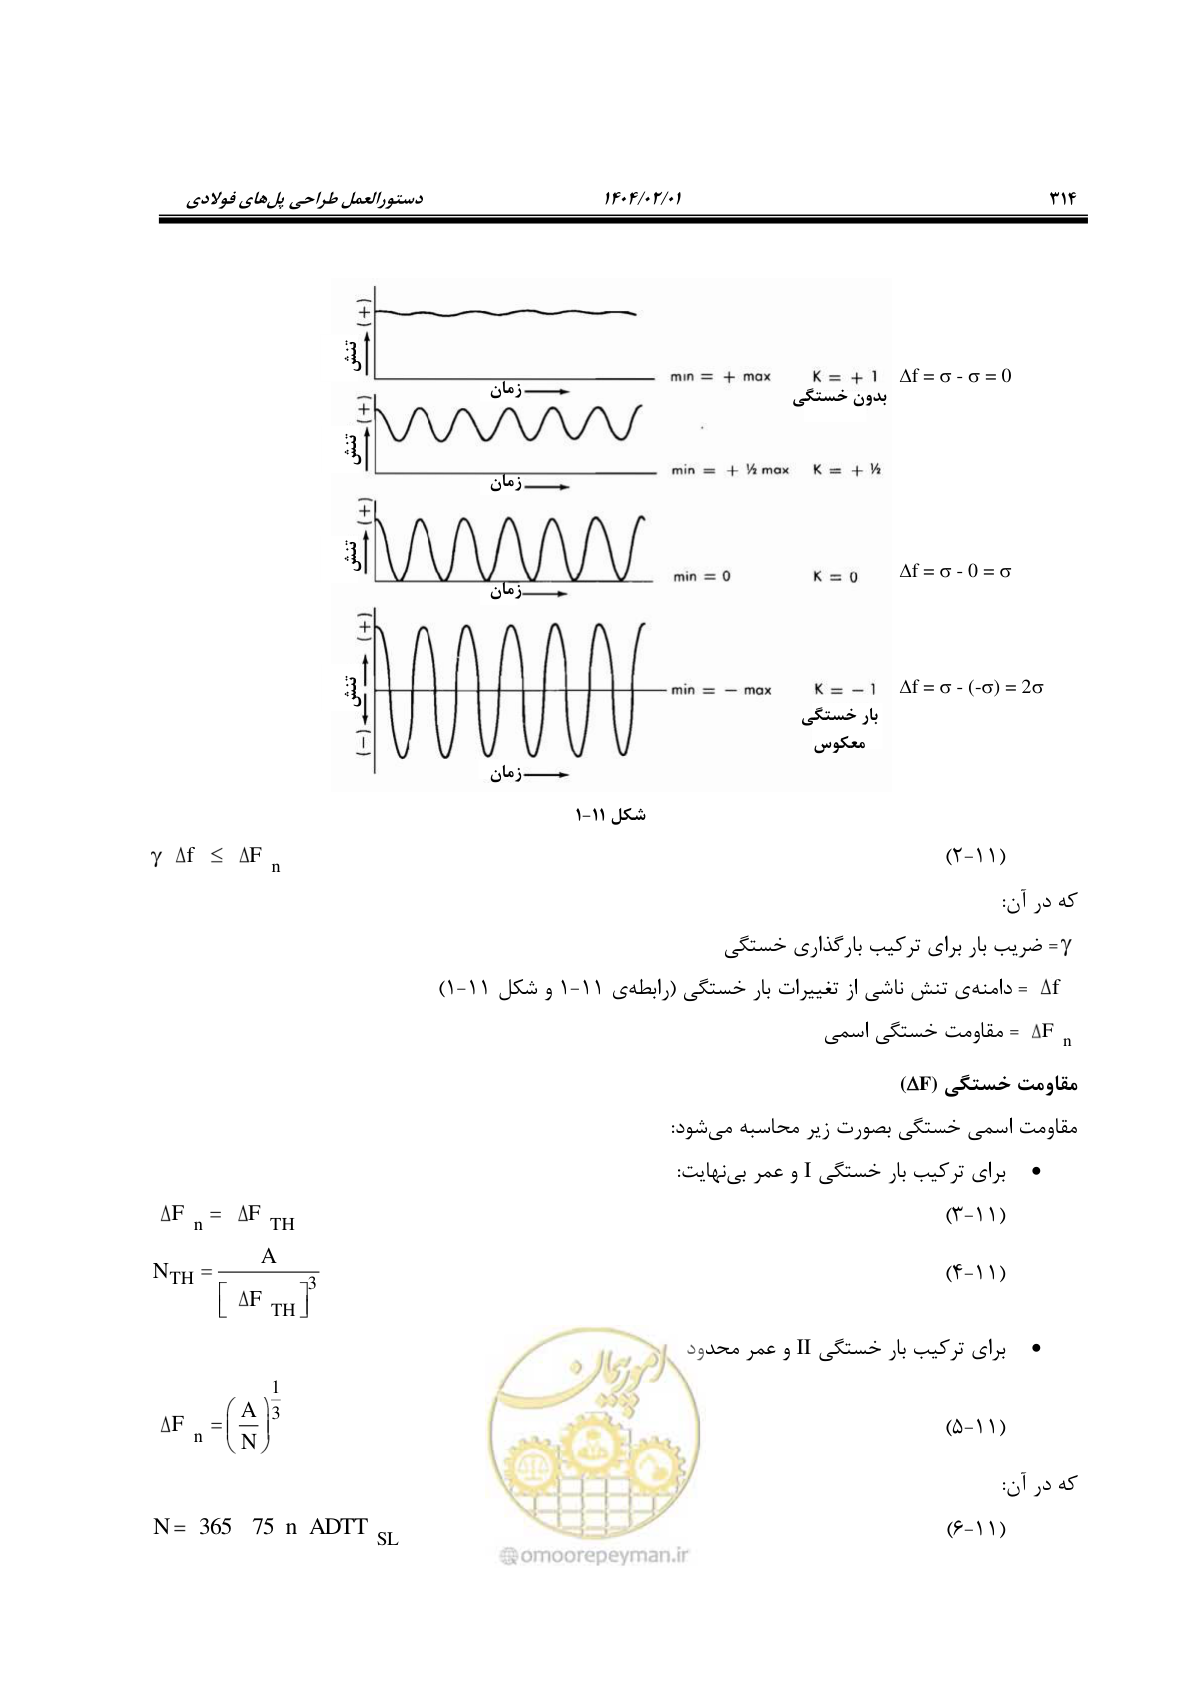 ۳۱۴ ۱۴۰۴/۰۲/۰۱ دستورالعمل طراحی پل‌های فولادی
(+)
تنش
زمان
min = + max K = + 1 Δf = σ - σ = 0
بدون خستگی
(+)
تنش
زمان
min = + ½ max K = + ½
(+)
تنش
زمان
min = 0 K = 0 Δf = σ - 0 = σ
(+)
تنش
(−)
زمان
min = − max K = − 1 Δf = σ - (-σ) = 2σ
بار خستگی
معکوس
شکل ۱۱-۱
γ Δf ≤ ΔF n (۲-۱۱)
که در آن:
γ= ضریب بار برای ترکیب بارگذاری خستگی
Δf = دامنه‌ی تنش ناشی از تغییرات بار خستگی (رابطه‌ی ۱۱-۱ و شکل ۱۱-۱)
ΔF n = مقاومت خستگی اسمی
مقاومت خستگی (ΔF)
مقاومت اسمی خستگی بصورت زیر محاسبه می‌شود:
• برای ترکیب بار خستگی I و عمر بی‌نهایت:
ΔF n = ΔF TH (۳-۱۱)
N TH = A / [ ΔF TH ]^3 (۴-۱۱)
• برای ترکیب بار خستگی II و عمر محدود
ΔF n = (A/N)^1/3 (۵-۱۱)
که در آن:
N = 365 75 n ADTT SL (۶-۱۱)
امور پیمان
@omoorepeyman.ir